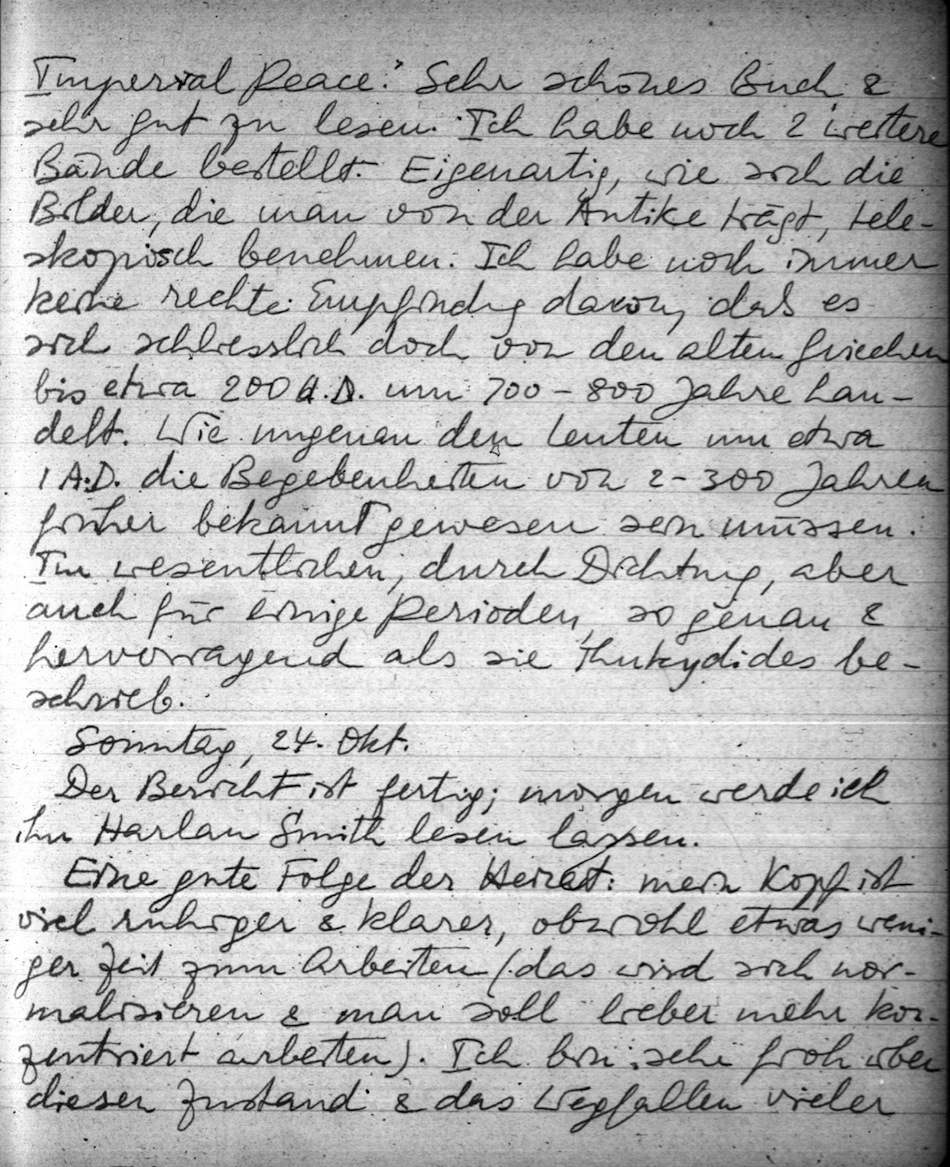 Imperial Peace." Sehr schönes Buch &
sehr gut zu lesen. Ich habe noch 2 weitere
Bände bestellt. Eigenartig, wie sich die
Bilder, die man von der Antike trägt, tele-
skopisch benehmen. Ich habe noch immer
keine rechte Empfindg davon, daß es
sich schliesslich doch von den alten Griechen
bis etwa 200 A.D. um 700-800 Jahre han-
delt. Wie ungenau den Leuten um etwa
1 A.D. die Begebenheiten von 2-300 Jahren
früher bekannt gewesen sein müssen.
Im wesentlichen, durch Dichtung, aber
auch für einige Perioden, so genau &
hervorragend als sie Thukydides be-
schrieb.
Sonntag, 24. Okt.
Der Bericht ist fertig; morgen werde ich
ihn Harlan Smith lesen lassen.
Eine gute Folge der Heirat: mein Kopf ist
viel ruhiger & klarer, obwohl etwas weni-
ger Zeit zum Arbeiten (das wird sich nor-
malisieren & man soll lieber mehr kon-
zentriert arbeiten). Ich bin sehr froh über
diesen Zustand & das Wegfallen vieler